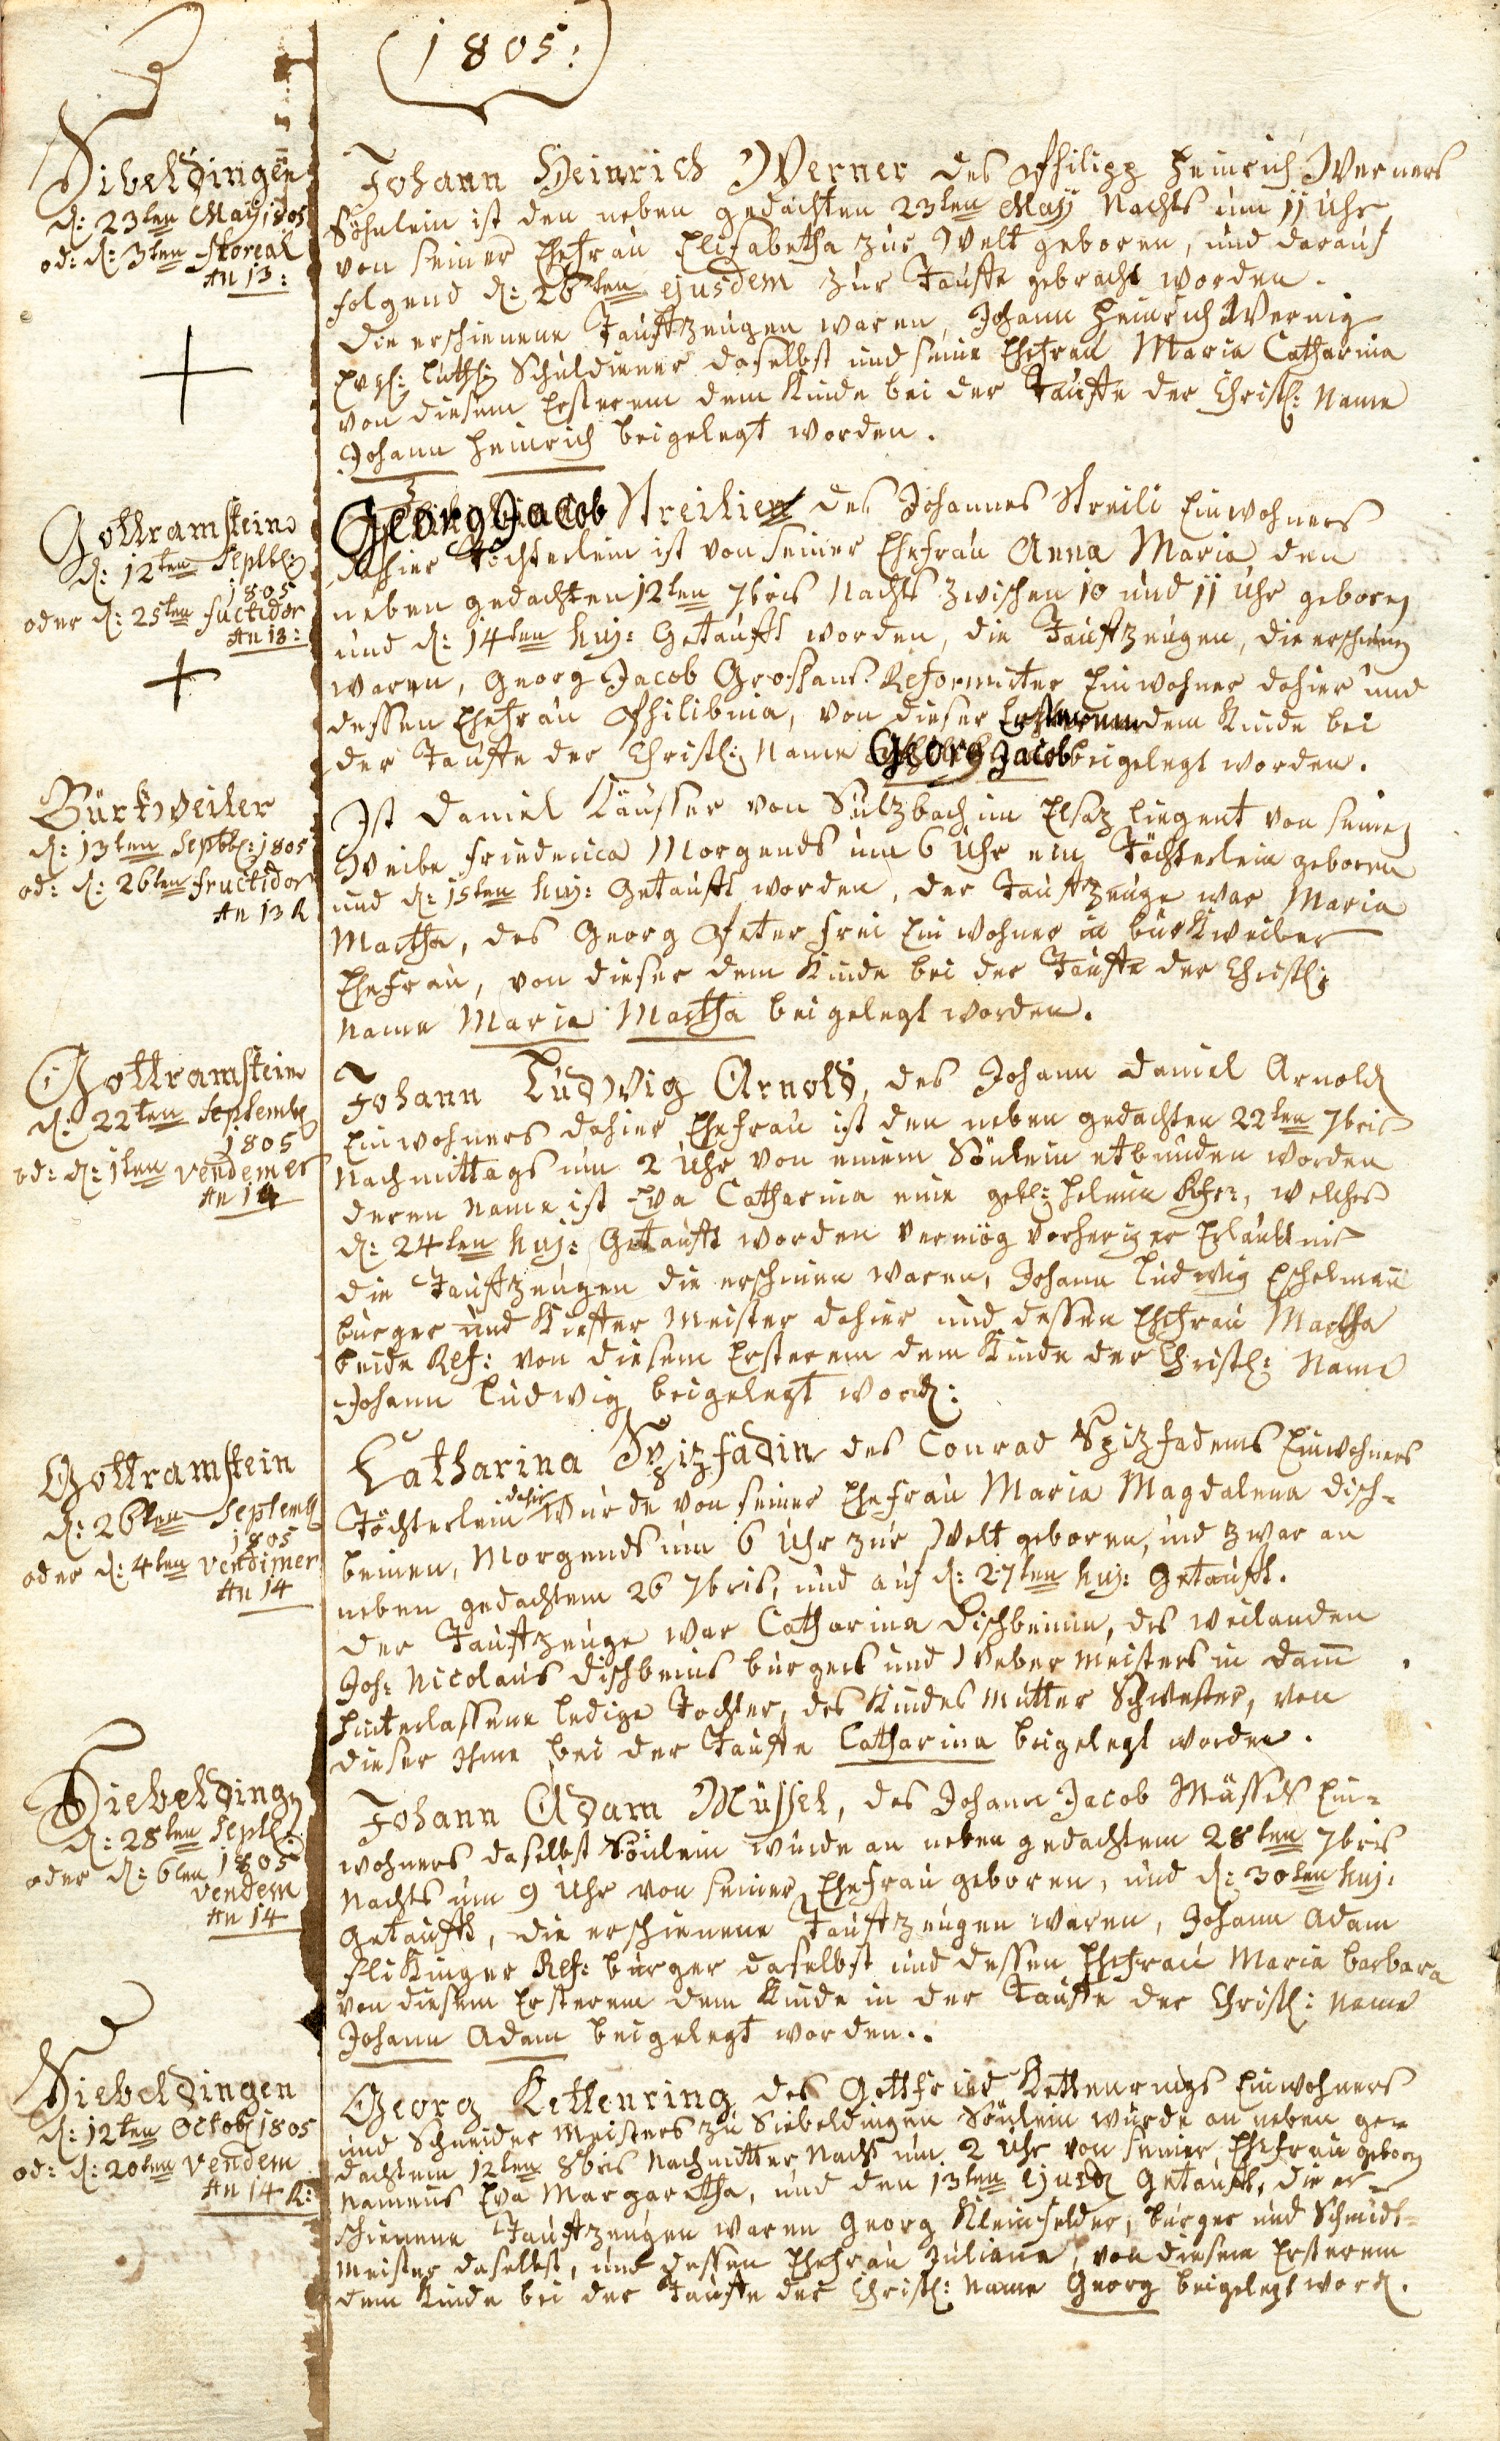 1805:
Sibeldingen
d: 23ten Maÿ 1805
od: d: 3ten floreal
An 13:
Johann Heinrich Werner des Philipp Heinrich Werners
Söhnlein ist den neben gedachten 23ten Maÿ Nachts um 11 Uhr
von seiner Ehefrau Elisabetha zur Welt geboren, und darauf
folgend d: 26ten ejusdem zur Tauffe gebracht worden.
Die erschienene Tauffzeugen waren, Johann Heinrich Wernig
Evgl: Luth: Schuldiener daselbst und seine Ehefrau Maria Catharina
von diesem Ersterem dem Kinde bei der Tauffe der Christl: Name
Johann Heinrich beigelegt worden.
Gottramstein
d: 12ten Septbl:
1805
oder d: 25ten fuctidor
An 13:
Georg Jacob Streili des Johannes Streili Einwohners
dahier Töchterlein ist von seiner Ehefrau Anna Maria den
neben gedachten 12ten 7bris Nachts zwischen 10 und 11 Uhr geboren
und d: 14ten huj: Getaufft worden, die Tauffzeugen, die erschienen
waren, Georg Jacob Groshans Reformiter Einwohner dahier und
dessen Ehefrau Philibina, von dieser Ersterem dem Kinde bei
der Tauffe der Christl: Name Georg Jacob beigelegt worden.
Bürkweiler
d: 13ten Septbl: 1805
od: d: 26ten fructidor
An 13 R
Ist Daniel Käusser von Sulzbach im Elsaz liegent von seinem
Weibe Friederica Morgends um 6 Uhr ein Töchterlein geboren
und d: 15ten huj: Getaufft worden, der Tauffzeuge war Maria
Martha, des Georg Peter Frei Einwohner in bürkweiler
Ehefrau, von dieser dem Kinde bei der Tauffe der Christl:
Name Maria Martha beigelegt worden.
Gottramstein
d: 22ten Septemb
1805
od: d: 1ten vendemer
An 14
Johann Ludwig Arnold, des Johann Daniel Arnold
Einwohners dahier Ehefrau ist den neben gedachten 22ten 7bris
Nachmittags um 2 Uhr von einem Sönlein etbunden worden
deren Name ist Eva Catharina eine gebl:, welches
d: 24ten huj: Getaufft worden vermög vorheriger Erlaubtnis
die Tauffzeugen die erschinen waren, Johann Ludwig Eschelman
burger und Kieffer Meister dahier und dessen Ehefrau Martha
beide Ref: von diesem Ersterem dem Kinde der Christl: Name
Johann Ludwig beigelegt word:
Gottramstein
d: 26ten Septemb
1805
oder d: 4ten vendimer
An 14
Catharina Spizfadin des Conrad Spizfadens Einwohners
Töchterlein dahier Wurde von seiner Ehefrau Maria Magdalena Disch-
beinin, Morgends um 6 Uhr zur Welt geboren, und zwar an
neben gedachtem 26 7bris, und auf d: 27ten huj: Getaufft.
der Tauffzeuge war Catharina Dischbeinin, des weilanden
Joh: Nicolaus Dischbeins burgers und Weber meisters in Dam
hinterlassene ledige Tochter, des Kindes Mutter Schwester, von
dieser Ihme bei der Tauffe Catharina beigelegt worden.
Siebelding
d: 28ten Septl:
1805
oder d: 6ten
vendem
An 14
Johann Adam Müssel, des Johann Jacob Müssels Ein-
wohners daselbst Sönlein wurde an neben gedachtem 28ten 7bris
Nachts um 9 Uhr von seiner Ehefrau geboren, und d: 30ten huj:
Getaufft, die erschienene Tauffzeugen waren, Johann Adam
Flikinger Ref: burger daselbst und dessen Ehefrau Maria barbara
von diesem Ersterem dem Kinde in der Tauffe der Christl: Name
Johann Adam beigelegt worden..
Siebeldingen
d: 12ten Octob 1805
od: d: 20ten vendem
An 14 R:
Georg Kettenring des Gottfried Kettenrings Einwohners
und Schneider Meisters zu Siebeldingen Sönlein wurde an neben ge-
dachtem 12ten 8bris Nachmitter Nacht um 2 Uhr von seiner Ehefrau geboren
namens Eva Margaretha, und den 13ten ejusd Getaufft, die er-
schienene Tauffzeugen waren Georg Kleinfelder, burger und Schmidt-
meister daselbst, und dessen Ehefrau Juliana, von diesem Ersterem
dem Kinde bei der Tauffe der Christl: Name Georg beigelegt word.